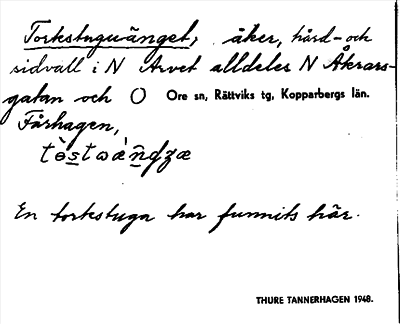 Torkstuguvänget, åker, hård- och
sidvall i N Arvet alldeles N Åkrars-
gatan och O Ore sn, Rättviks tg, Kopparbergs län.
Fårhagen,
En torkstuga har funnits här.
THURE TANNERHAGEN 1948.